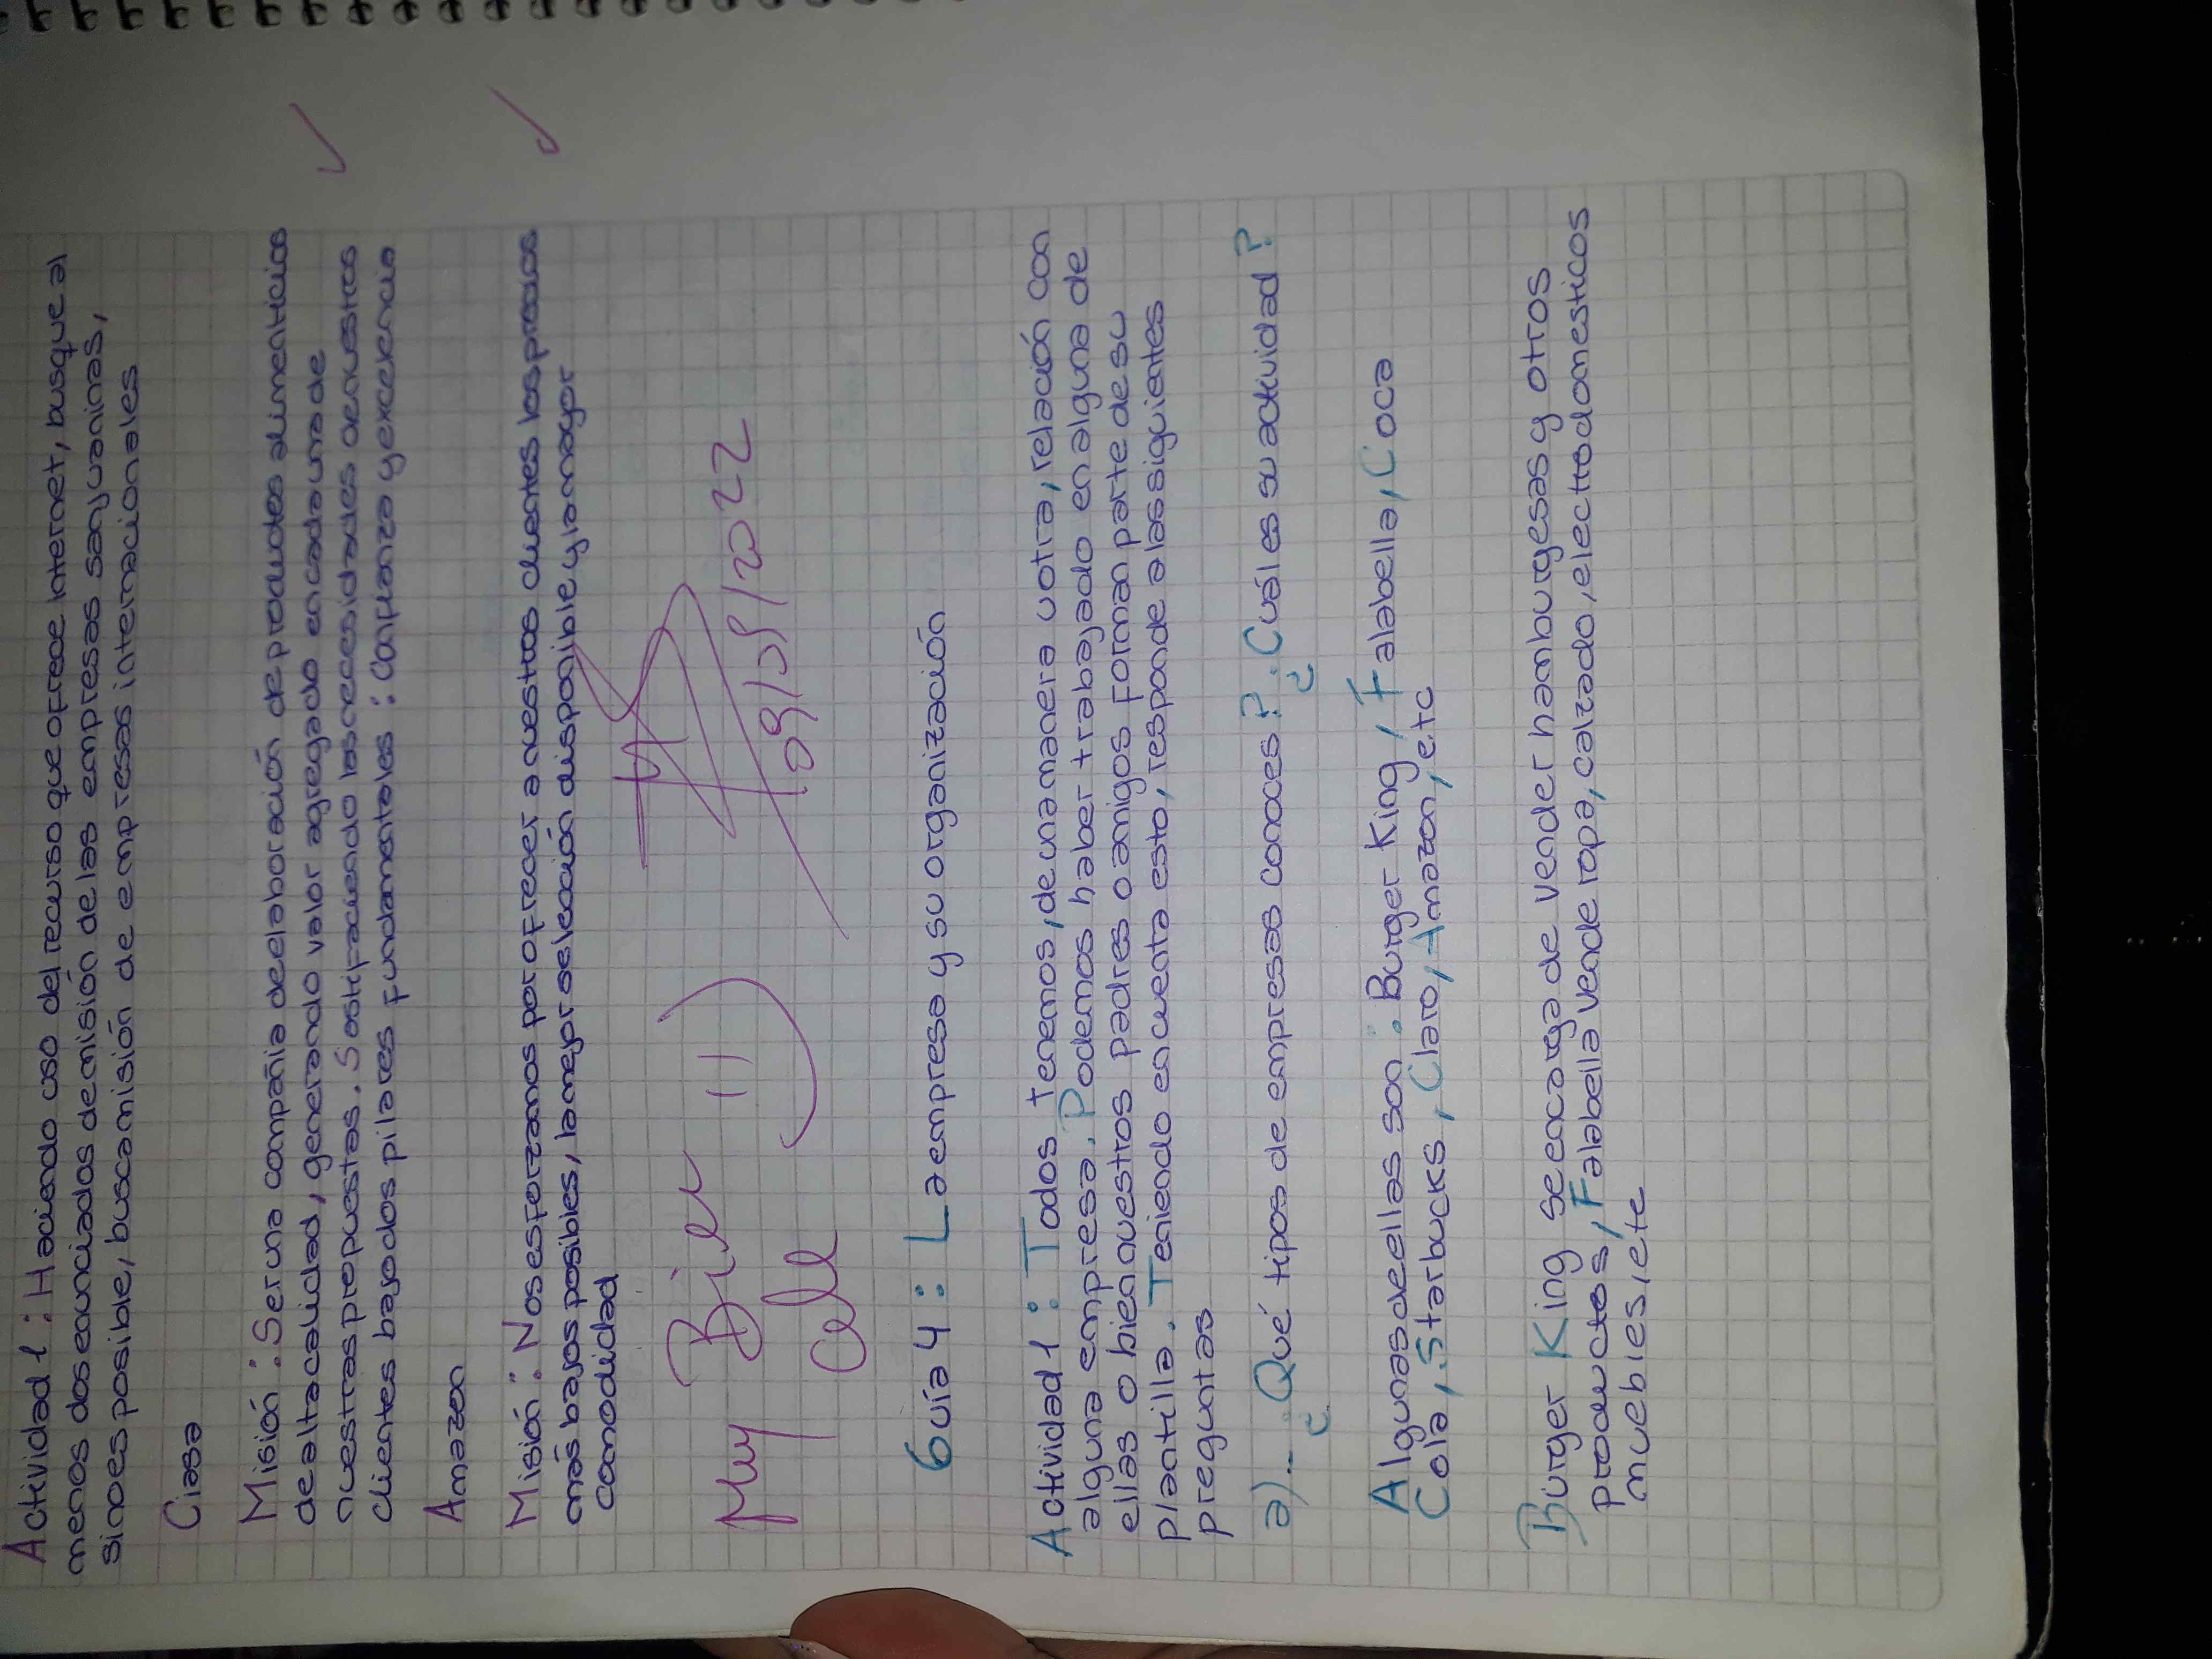 Actividad 1 : Haciendo uso del recurso que ofrece internet, busque al
menos dos enunciados de misión de las empresas sanjuaninas,
si no es posible, busca misión de empresas internacionales
Ciasa
Misión : Ser una compañia de elaboración de productos alimenticios
de alta calidad, generando valor agregado en cada una de
nuestras propuestas. Sastifaciendo las necesidades de nuestros
clientes bajo dos pilares fundamentales : Confianza y excelencia
Amazon
Misión : Nos esforzamos por ofrecer a nuestros clientes los precios
más bajos posibles, la mejor selección disponible y la mayor
comodidad
Muy Bien
Cele
09/09/2022
Guía 4 : La empresa y su organización
Actividad 1 : Todos tenemos, de una manera u otra, relación con
alguna empresa. Podemos haber trabajado en alguna de
ellas o bien nuestros padres o amigos forman parte de su
plantilla. Teniendo en cuenta esto, responde a las siguientes
preguntas
a)- ¿Qué tipos de empresas conoces? ¿Cuál es su actividad?
Algunas de ellas son : Burger King, Falabella, Coca
Cola, Starbucks, Claro, Amazon, etc
Burger King se encarga de vender hamburgesas y otros
productos, Falabella vende ropa, calzado, electrodomesticos
muebles, etc